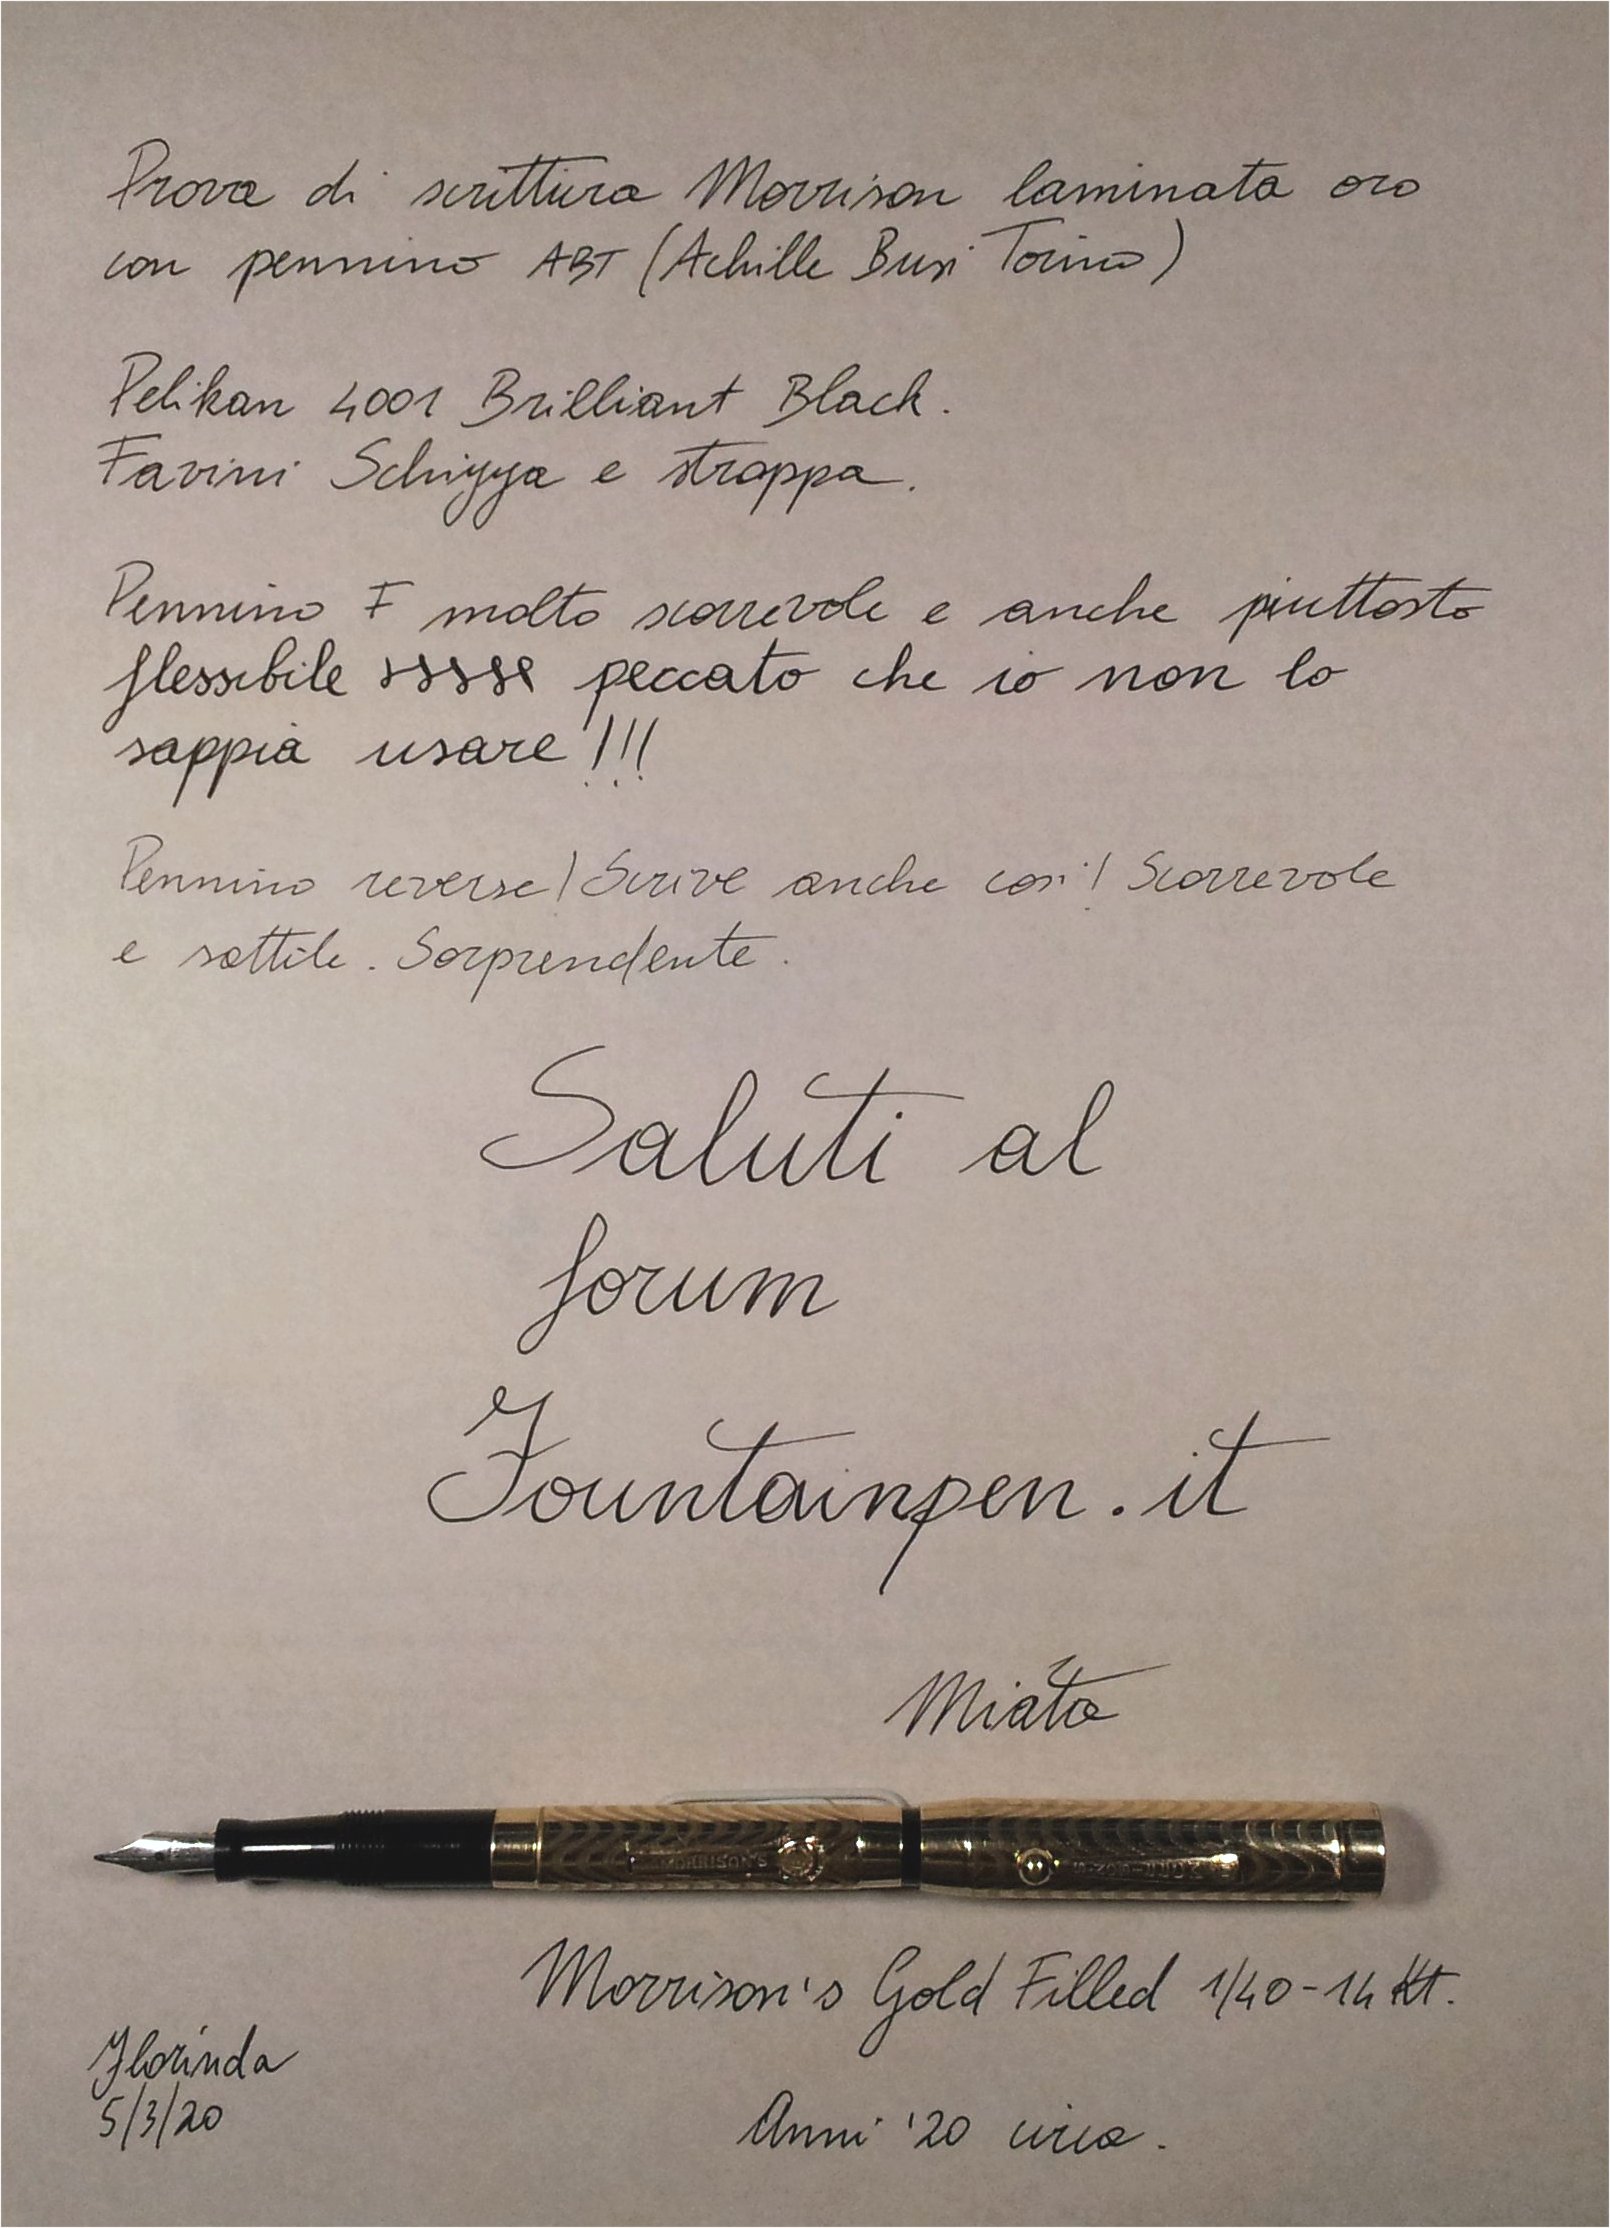 Prova di scrittura Morrison laminata oro
con pennino ABT (Achille Busi Torino)
Pelikan 4001 Brilliant Black.
Favini Schizza e strappa.
Pennino F molto scorrevole e anche piuttosto
flessibile peccato che io non lo
sappia usare!!!
Pennino reverse! Scrive anche così! Scorrevole
e sottile. Sorprendente.
Saluti al
forum
Fountainpen.it
Miata
MORRISON'S
Morrison's Gold Filled 1/40-14 Kt.
Florinda
5/3/20
Anni '20 circa.